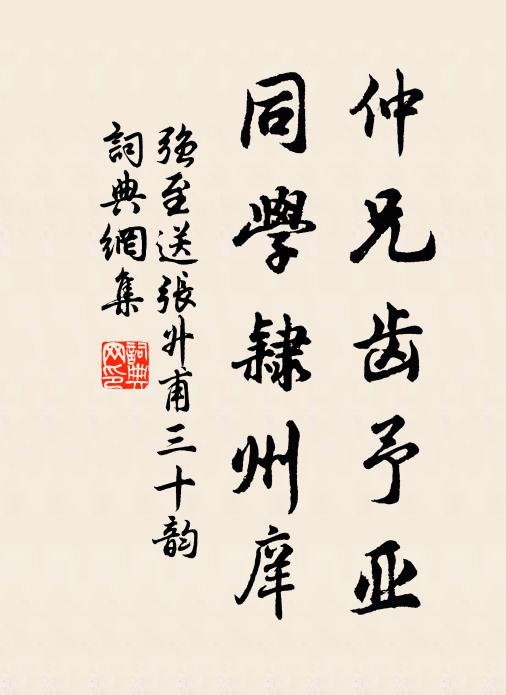 仲兄齿予亚
同學隸州庠
强至送張升甫三十韵
詞典網集
詞典网印